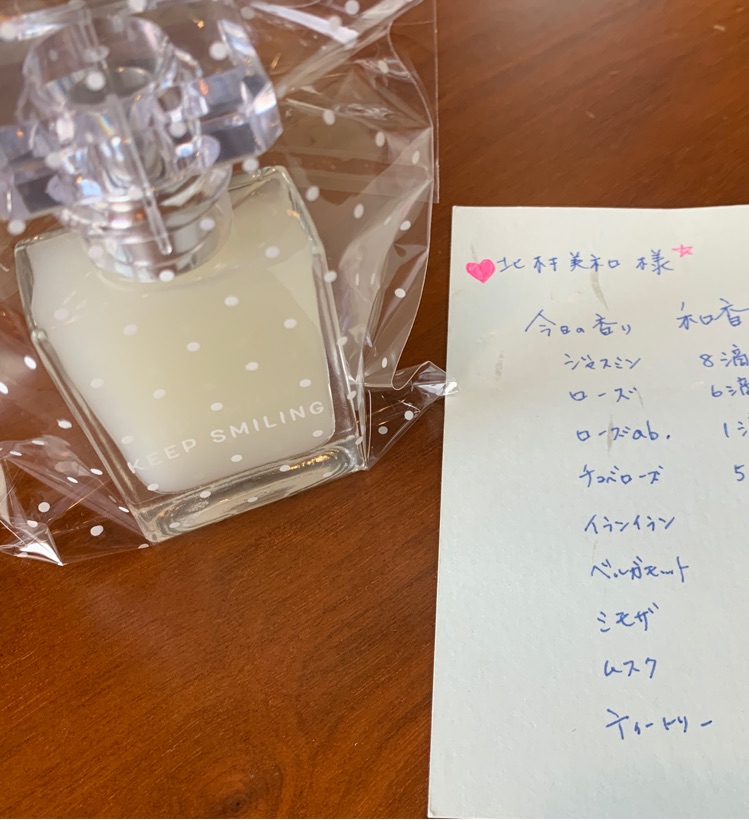 KEEP SMILING
北村美和様
今日の香り 和香
ジャスミン 8滴
ローズ 6滴
ローズab. 1
チュベローズ 5
イランイラン
ベルガモット
ミモザ
ムスク
ティートリー